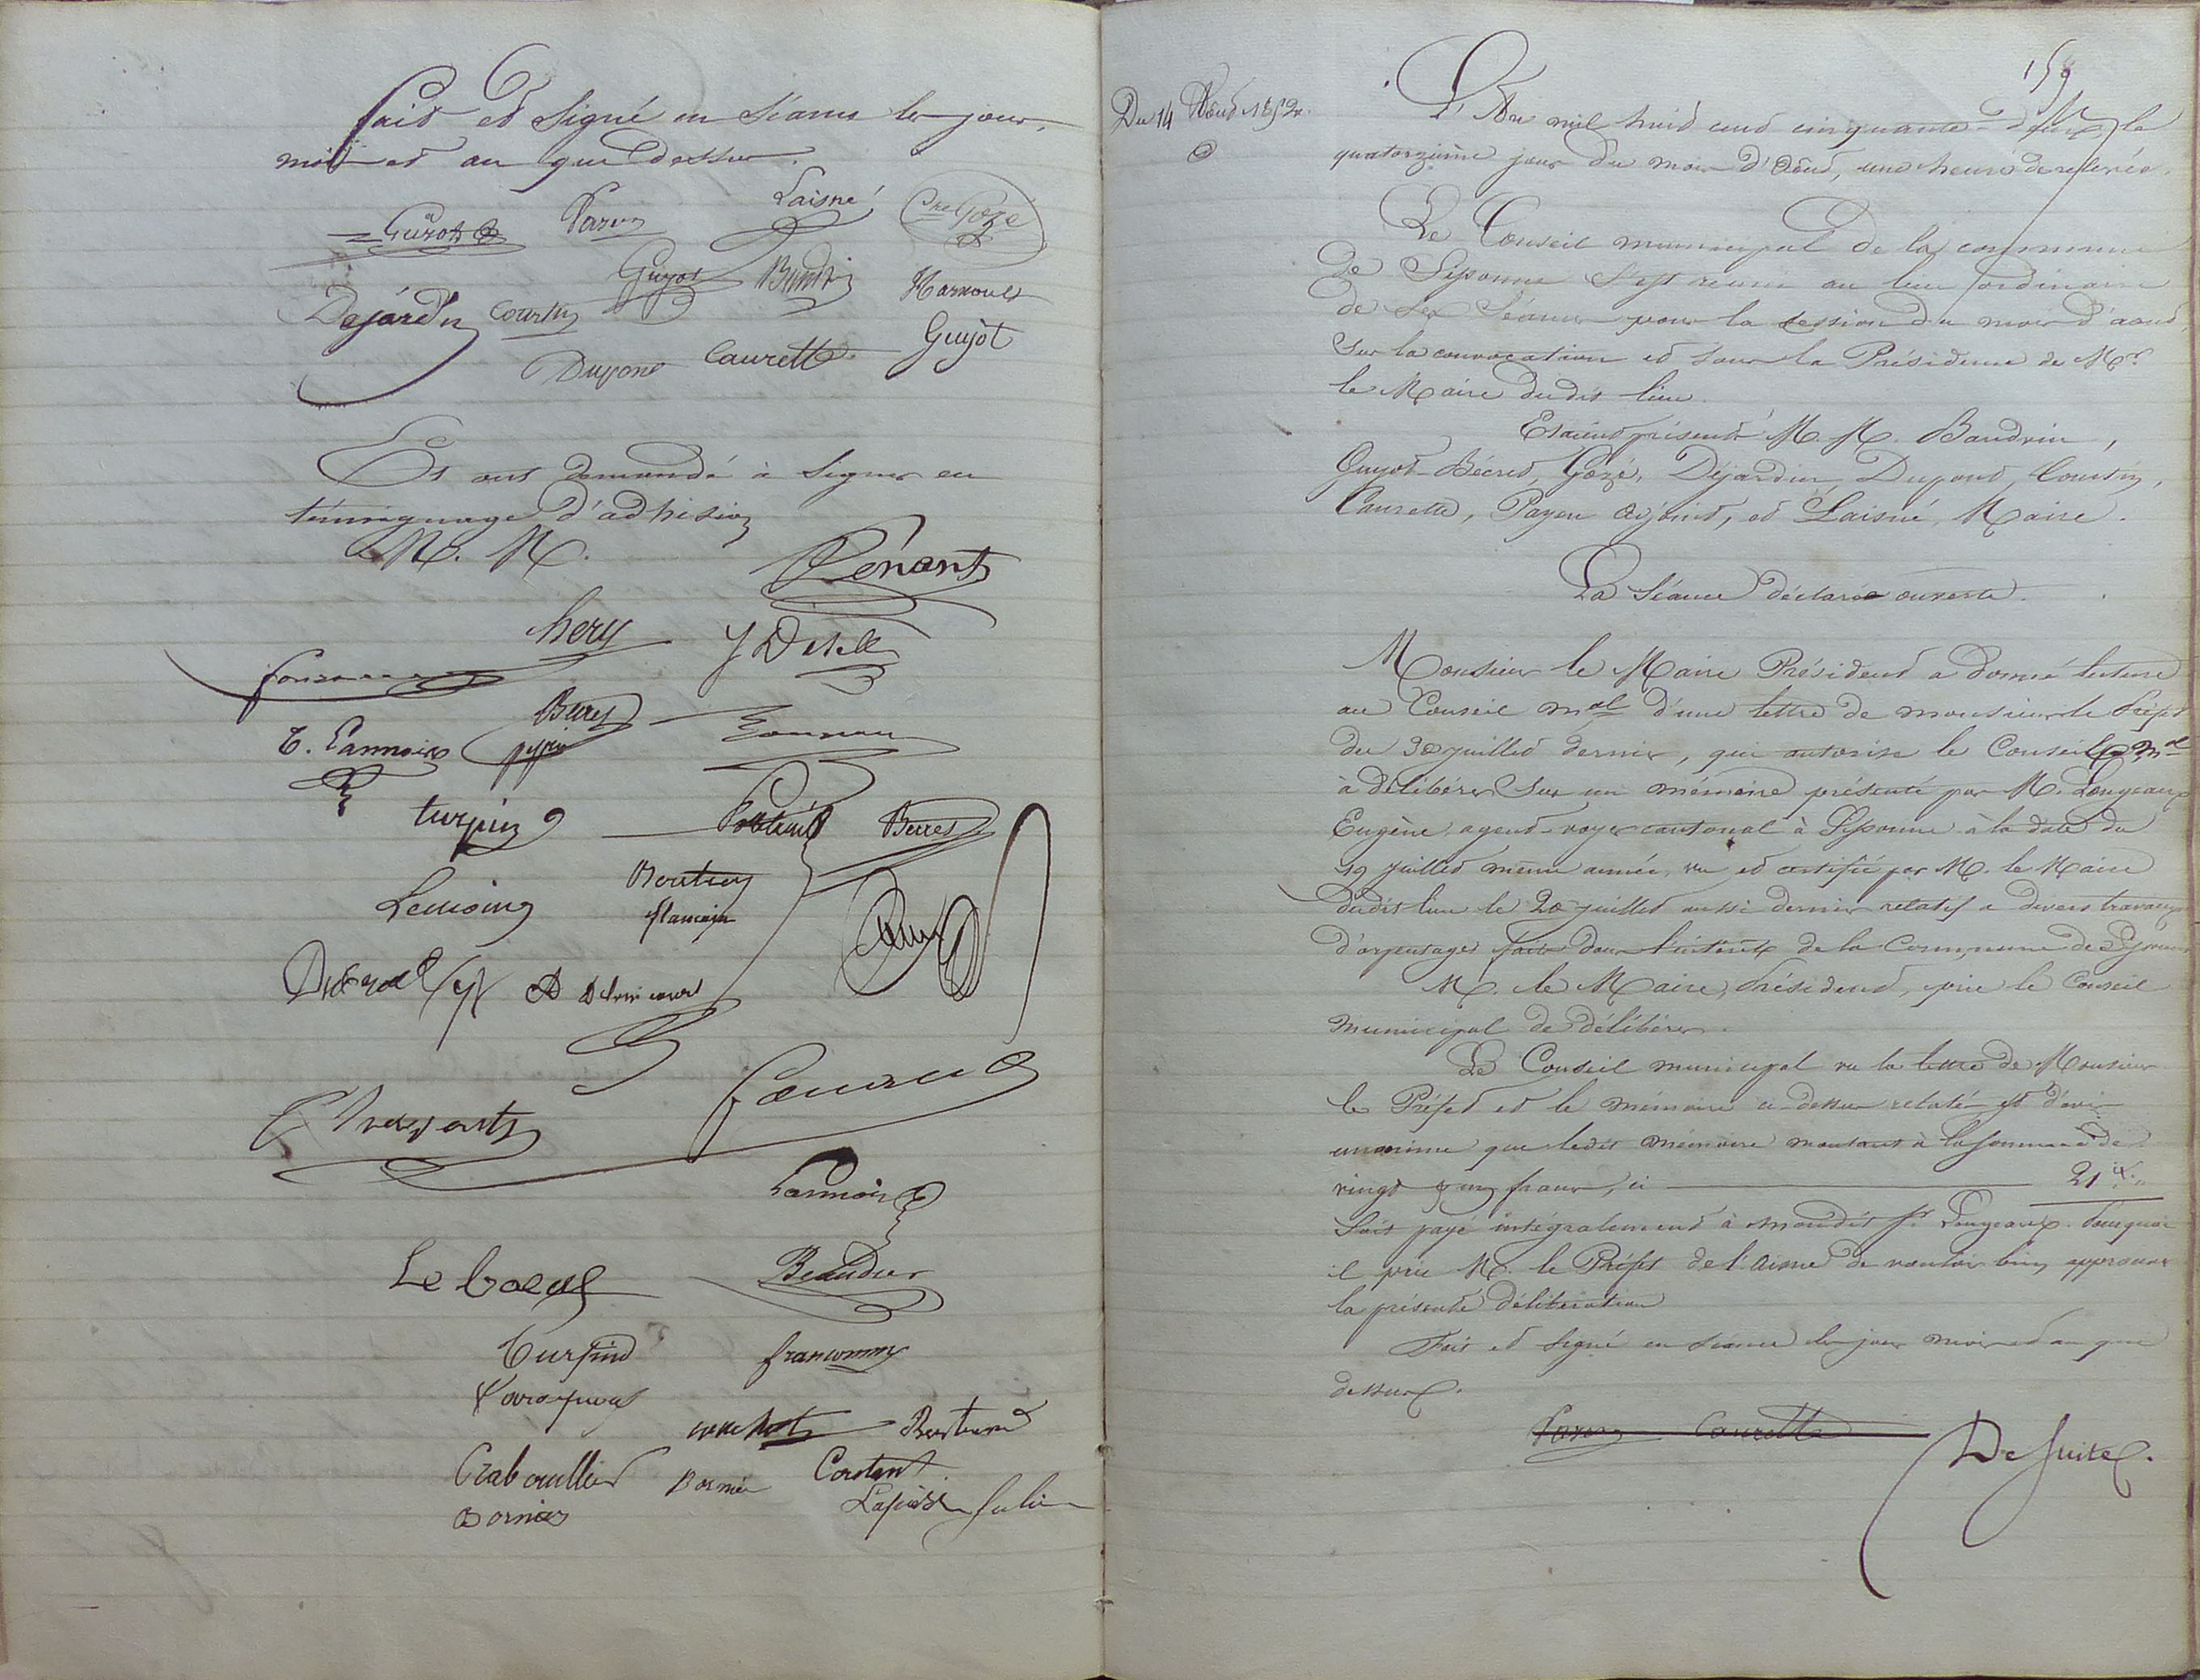 fait et signé en séance les jour,
mois et an que dessus.
Laisné
Gozé
Guyot
Payen
Dejardin Courtin Guyot Harnoult
Dupont Caurette Guyot
Et ont demandé à signer en
témoignage d'adhésion
M. M.
Pénant
hery
T. Lannois
turpin
Lemoine
Lannois
Le boeuf
Beaudier
turpin
francomme
Constant
159
Du 14 Août 1852.
L'An mil huit cent cinquante-deux, le
quatorzième jour du mois d'Août, une heure de relevée,
Le Conseil municipal de la commune
de Sissonne s'est réuni au lieu ordinaire
de ses séances pour la session du mois d'août,
sur la convocation et sous la Présidence de Mr
le Maire dudit lieu.
Etaient présents M. M. Baudrin,
Guyot-Bécret, Gozé, Déjardin, Dupont, Courtin,
Caurette, Payen adjoint, et Laisné, Maire.
La Séance déclarée ouverte.
Monsieur le Maire Président a donné lecture
au Conseil mal d'une lettre de monsieur le Préfet
du 30 juillet dernier, qui autorise le Conseil mal
à délibérer sur un mémoire présenté par M. Longeaux
Eugène, agent-voyer cantonal à Sissonne à la date du
19 juillet même année, vu et certifié par M. le Maire
dudit lieu le 20 juillet aussi dernier relatif à divers travaux
d'arpentages faits dans l'intérêt de la Commune de Sissonne
M. le Maire, Président, prie le Conseil
municipal de délibérer.
Le Conseil municipal vu la lettre de Monsieur
le Préfet et le mémoire ci-dessus relaté est d'avis
unanime que ledit mémoire montant à la somme de
vingt et un francs, ci 21
soit payé intégralement à mondit Sr Longeaux. Pourquoi
il prie M. le Préfet de l'Aisne de vouloir bien approuver
la présente délibération
Fait et signé en séance les jour mois et an que
dessus.
Payen Caurette
De suite.